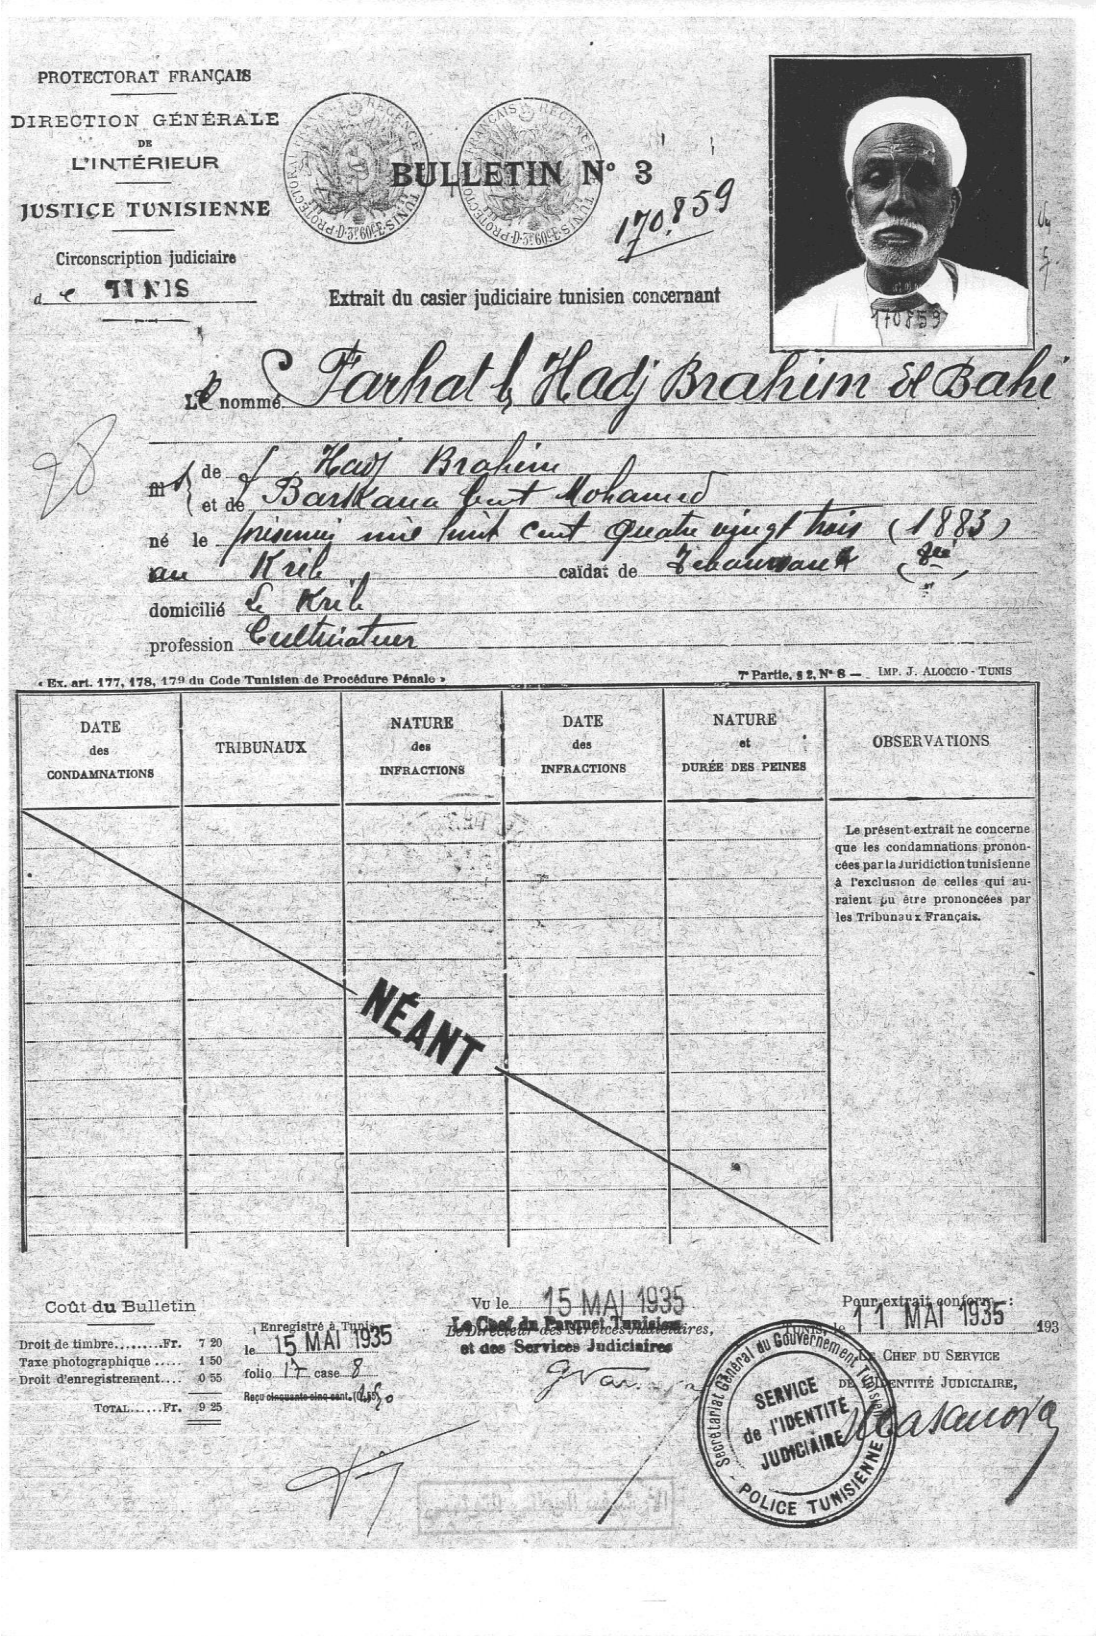 PROTECTORAT FRANÇAIS
DIRECTION GÉNÉRALE
DE
L'INTÉRIEUR
JUSTICE TUNISIENNE
Circonscription judiciaire
de TUNIS
PROTECTORAT FRANÇAIS RÉGENCE TUNIS
PROTECTORAT FRANÇAIS RÉGENCE TUNIS
BULLETIN Nº 3
170.859
170859
Extrait du casier judiciaire tunisien concernant
Le nommé Farhat b Hadj Brahim El Bahi
28
fils de Hadj Brahim
et de Barkana bent Mohamed
né le présumé mil huit cent quatre vingt trois (1883)
au Krib caïdat de
domicilié Le Krib
profession Cultivateur
« Ex. art. 177, 178, 179 du Code Tunisien de Procédure Pénale »
7e Partie, § 2, Nº 8 — IMP. J. ALOCCIO - TUNIS
DATE des CONDAMNATIONS
TRIBUNAUX
NATURE des INFRACTIONS
DATE des INFRACTIONS
NATURE et DURÉE DES PEINES
OBSERVATIONS
Le présent extrait ne concerne
que les condamnations pronon-
cées par la Juridiction tunisienne
à l'exclusion de celles qui au-
raient pu être prononcées par
les Tribunaux Français.
NÉANT
Coût du Bulletin
Droit de timbre........Fr. 7 20
Taxe photographique ..... 1 50
Droit d'enregistrement.... 0 55
TOTAL......Fr. 9 25
Enregistré à Tunis
le 15 MAI 1935
folio 17 case 8
Reçu cinquante cinq cent. (0,55)
Vu le 15 MAI 1935
Le Directeur des Services Judiciaires,
Le Chef du Parquet Tunisien
et des Services Judiciaires
Pour extrait conforme :
Tunis, le 11 MAI 1935 193
LE CHEF DU SERVICE
DE L'IDENTITÉ JUDICIAIRE,
Casanova
Secrétariat Général du Gouvernement Tunisien
SERVICE
de l'IDENTITÉ
JUDICIAIRE
POLICE TUNISIENNE